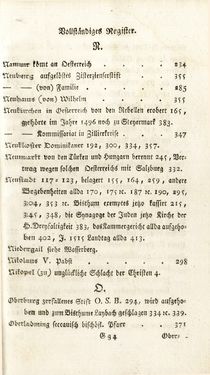 Vollständiges Register.
N.
Namur kömt an Oesterreich — 234
Neuberg aufgelöstes Zisterzienserstift 355
— — (von) Familie — — 285
Neuhaus (von) Wilhelm — — 355
Neukirchen in Oesterreich von den Rebellen erobert 165,
gehörete im Jahre 1496 noch zu Steyermark 383.
— — Kommissariat in Zillierkreise — 347
Neukloster Dominikaner 192, 300, 334, 357.
Neumarkt von den Türken und Hungarn berennt 245, Ver-
trag wegen solchen Oesterreich mit Salzburg 332.
Neustadt 117 ꝛc. 123, belagert 155, 164, 259, andere
Begebenheiten allda 170, 175, 181, 187 ꝛc. 190, 295,
304, 353 ꝛc. Bisthum exemptes jetzo kassier 215,
345, 438, die Synagog der Juden jetzo Kirche der
H. Dreyfaltigkeit 383, das Kammergericht allda aufgeho-
ben 402, J. 1515 Landtag allda 413.
Niedergail siehe Wasserberg.
Nikolaus V. Pabst — — 298
Nikopel (zu) unglückliche Schlacht der Christen 4.
O.
Oberburg zerfallenes Stift O. S. B. 294, wird aufgeho-
ben und zum Bisthume Laybach geschlagen 334 ꝛc. 339.
Oberladnung seccauisch bischöfl. Pfarr — 371
G g 4 Ober-